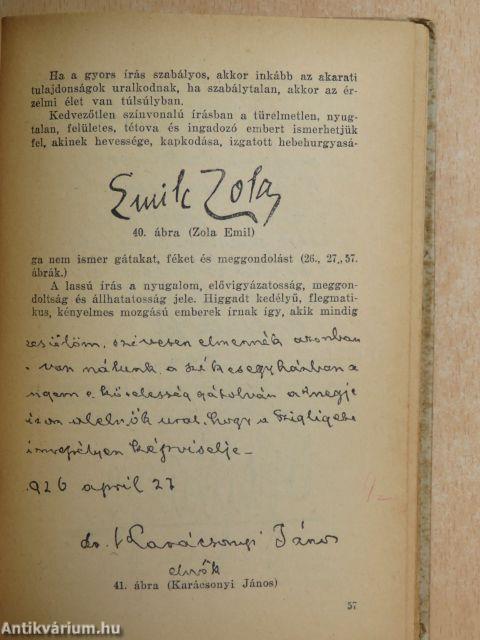 Ha a gyors írás szabályos, akkor inkább az akarati
tulajdonságok uralkodnak, ha szabálytalan, akkor az ér-
zelmi élet van túlsúlyban.
Kedvezőtlen színvonalú írásban a türelmetlen, nyug-
talan, felületes, tétova és ingadozó embert ismerhetjük
fel, akinek hevessége, kapkodása, izgatott hebehurgyasá-
Emile Zola
40. ábra (Zola Emil)
ga nem ismer gátakat, féket és meggondolást (26., 27., 57.
ábrák.)
A lassú írás a nyugalom, elővigyázatosság, meggon-
doltság és állhatatosság jele. Higgadt kedélyű, flegmati-
kus, kényelmes mozgású emberek írnak így, akik mindig
szívesen elmennék azonban
van nálunk a székesegyházban a
kötelesség gátolván a megje
alelnök urat, hogy a Szigligeti
ünnepélyen képviselje
926 april 27
dr. Karácsonyi János
elnök
41. ábra (Karácsonyi János)
57
Antikvárium.hu